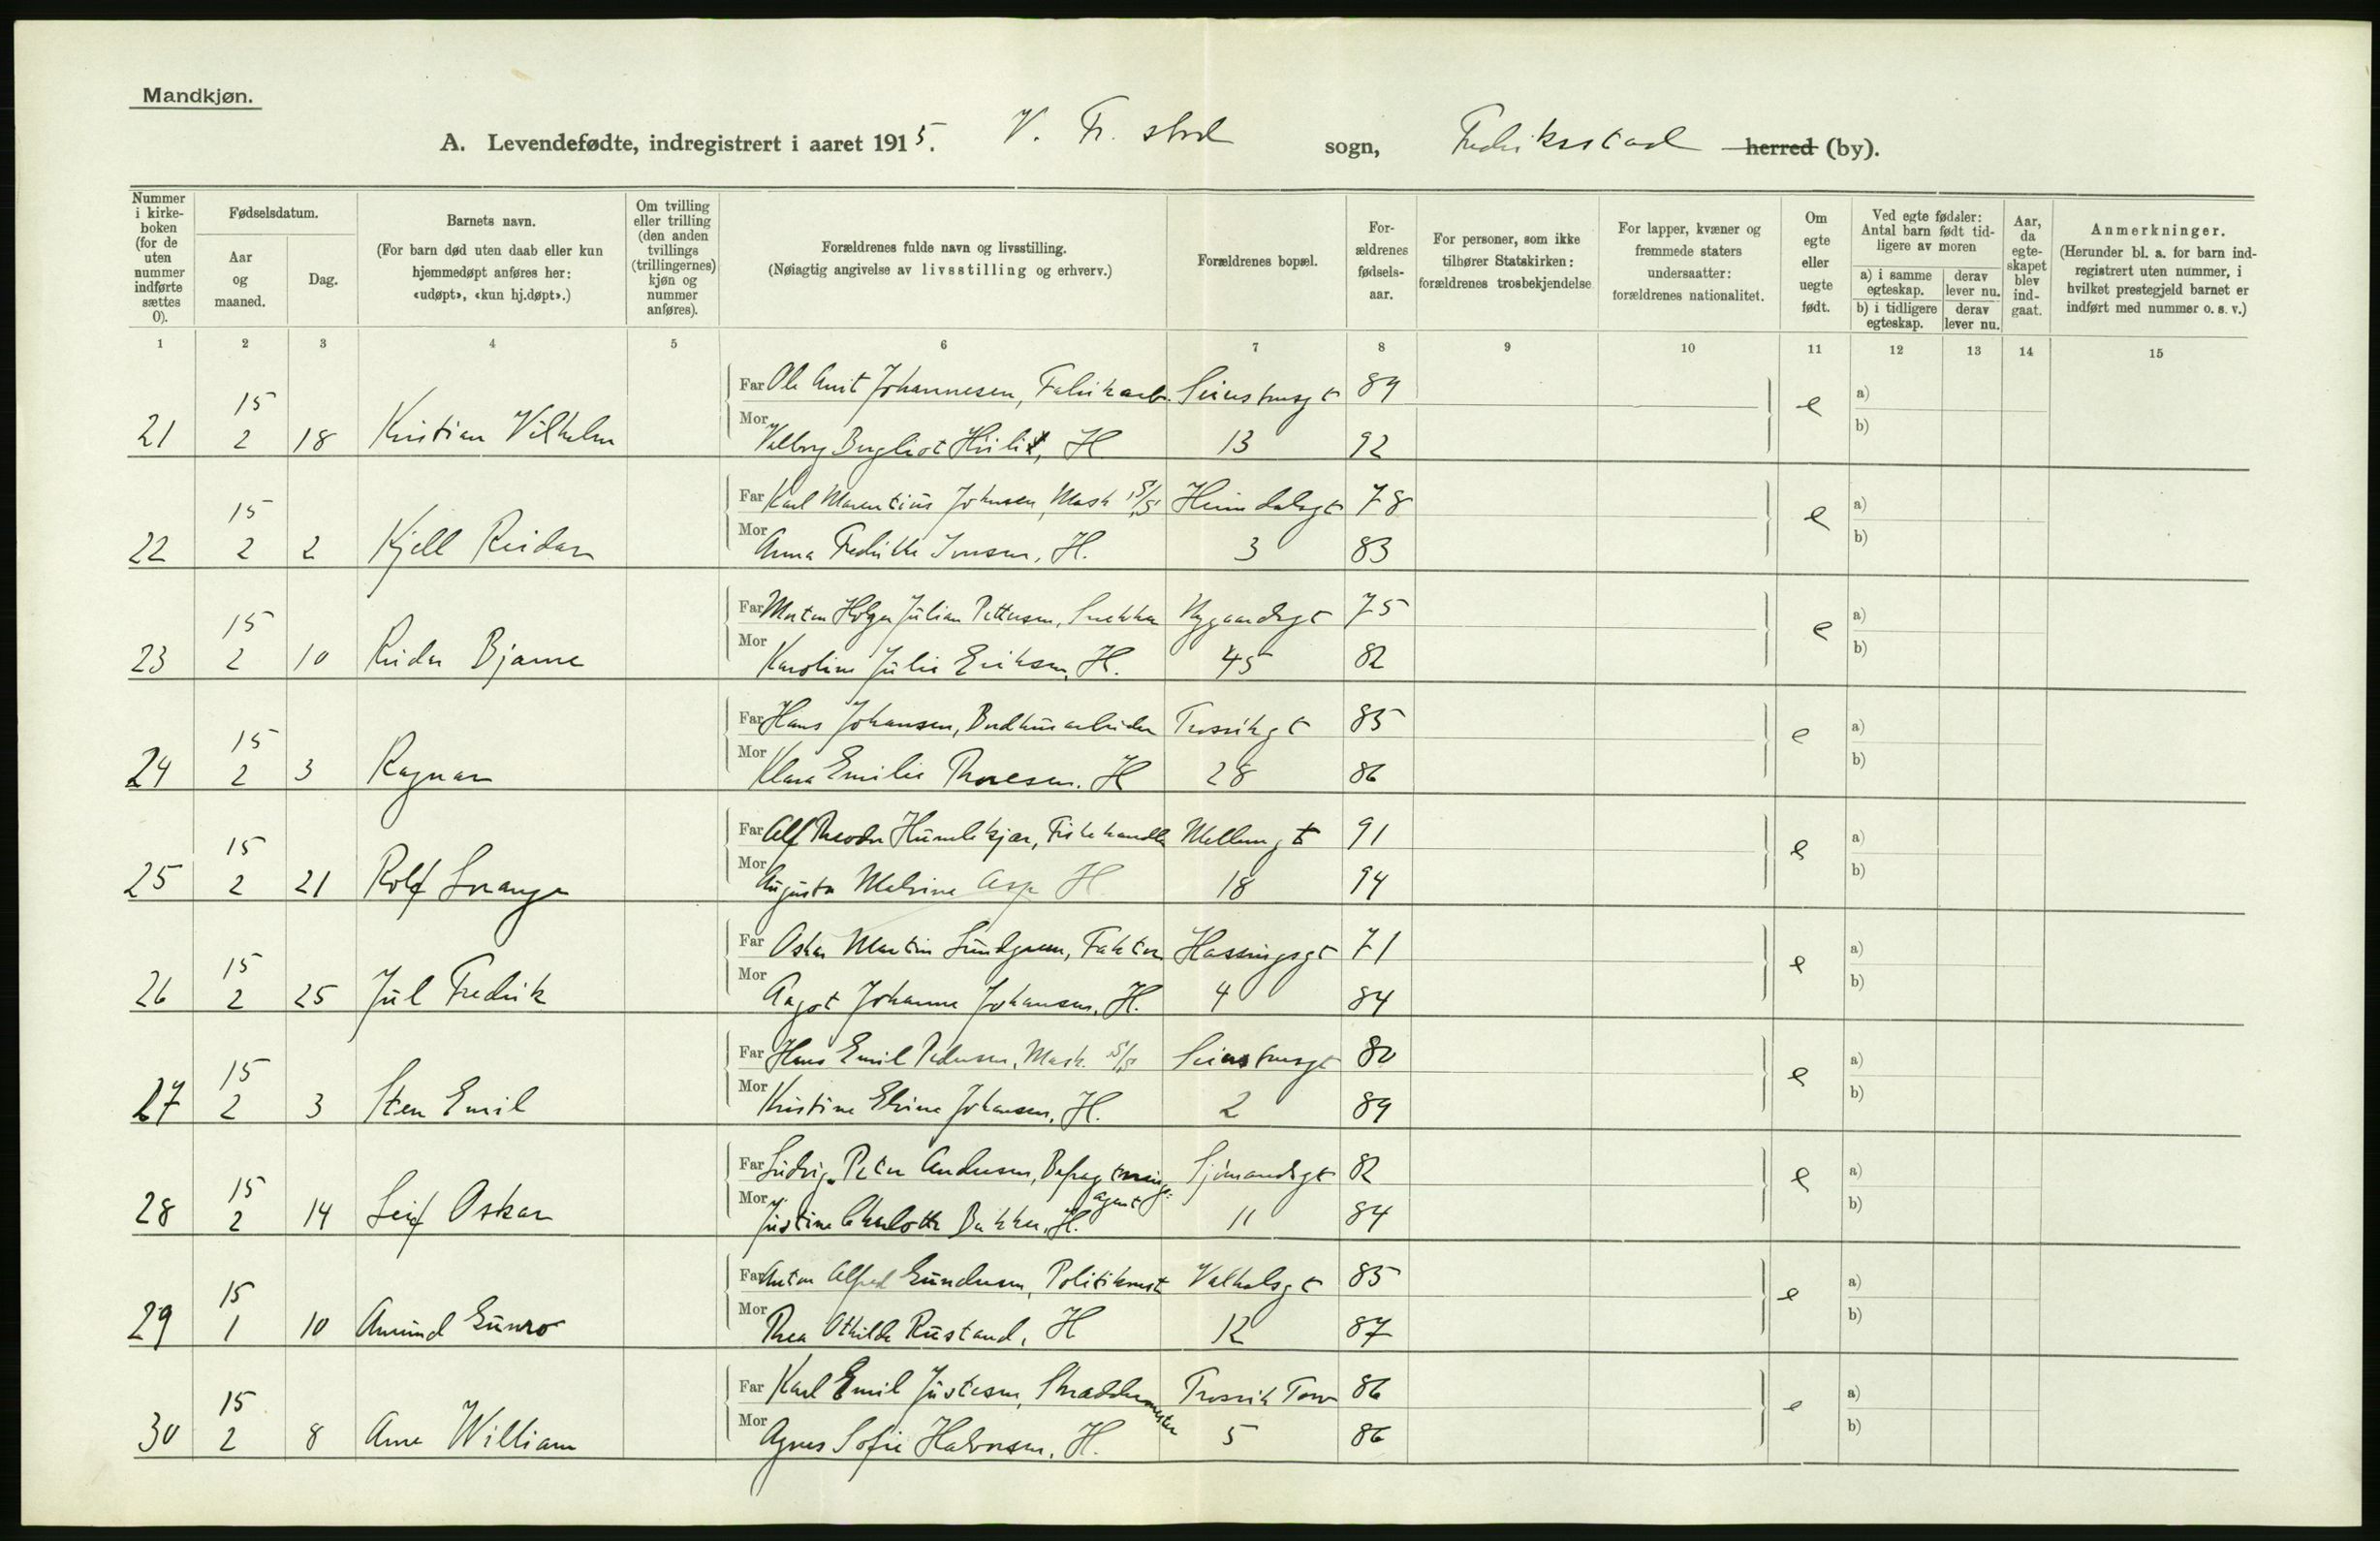 Mandkjøn.
A. Levendefødte, indregistrert i aaret 1915. V. Fr. stad sogn, Fredriksstad herred (by).
Nummer i kirke-boken (for de uten nummer indførte sættes 0).
Fødselsdatum.
Aar og maaned.
Dag.
Barnets navn.
(For barn død uten daab eller kun hjemmedøpt anføres her: «udøpt», «kun hj.døpt».)
Om tvilling eller trilling (den anden tvillings (trillingernes) kjøn og nummer anføres).
Forældrenes fulde navn og livsstilling.
(Nøiagtig angivelse av livsstilling og erhverv.)
Forældrenes bopæl.
For-ældrenes fødsels-aar.
For personer, som ikke tilhører Statskirken: forældrenes trosbekjendelse
For lapper, kvæner og fremmede staters undersaatter: forældrenes nationalitet.
Om egte eller uegte født.
Ved egte fødsler: Antal barn født tid-ligere av moren
a) i samme egteskap.
derav lever nu.
b) i tidligere egteskap.
derav lever nu.
Aar, da egte-skapet blev ind-gaat.
Anmerkninger.
(Herunder bl. a. for barn ind-registrert uten nummer, i hvilket prestegjeld barnet er indført med nummer o. s. v.)
1 2 3 4 5 6 7 8 9 10 11 12 13 14 15
15 Far Ole Johannesen, Fabrikarb. 89 e a)
21 2 18 Kristian Vilhelm Mor Valborg H 13 92 b)
15 Far Karl Marentius Johnsen, Mask Heimdalsgt 78 e a)
22 2 2 Kjell Reidar Mor Anna Fredrikke H. 3 83 b)
15 Far Morten Holger Julian Pettersen, Snekker Nygaardsgt 75 e a)
23 2 10 Reidar Bjarne Mor Karoline Julie Eriksen, H. 45 82 b)
15 Far Hans Johansen, Trosvikgt 85 e a)
24 2 3 Ragnar Mor Klara Emilie Thoresen. H 28 86 b)
15 Far Alf Theodor Humlekjær, Fiskehandler Mellemgt 91 e a)
25 2 21 Rolf Mor Augusta Malvine Asp H 18 94 b)
15 Far Oskar Martin Lundgreen, Faktor Hassingsgt 71 e a)
26 2 25 Jul Fredrik Mor Aagot Johanne Johansen, H. 4 84 b)
15 Far Hans Emil Pedersen, Mask. 80 e a)
27 2 3 Sten Emil Mor Kristine Elvine Johansen, H. 2 89 b)
15 Far Ludvig Peter Andersen, Befragtnings- Sjömandsgt 82 e a)
agent
28 2 14 Leif Oskar Mor Justine Charlotte Bakke, H. 11 84 b)
15 Far Anton Alfred Gundersen, Politikonst Valhalsgt 85 e a)
29 1 10 Amund Gunro Mor Thea Othilde Rustand, H 12 87 b)
15 Far Karl Emil Justesen, Skrædder Trosvik Torv 86 e a)
mester
30 2 8 Arne William Mor Agnes Sofie Halvorsen, H. 5 86 b)